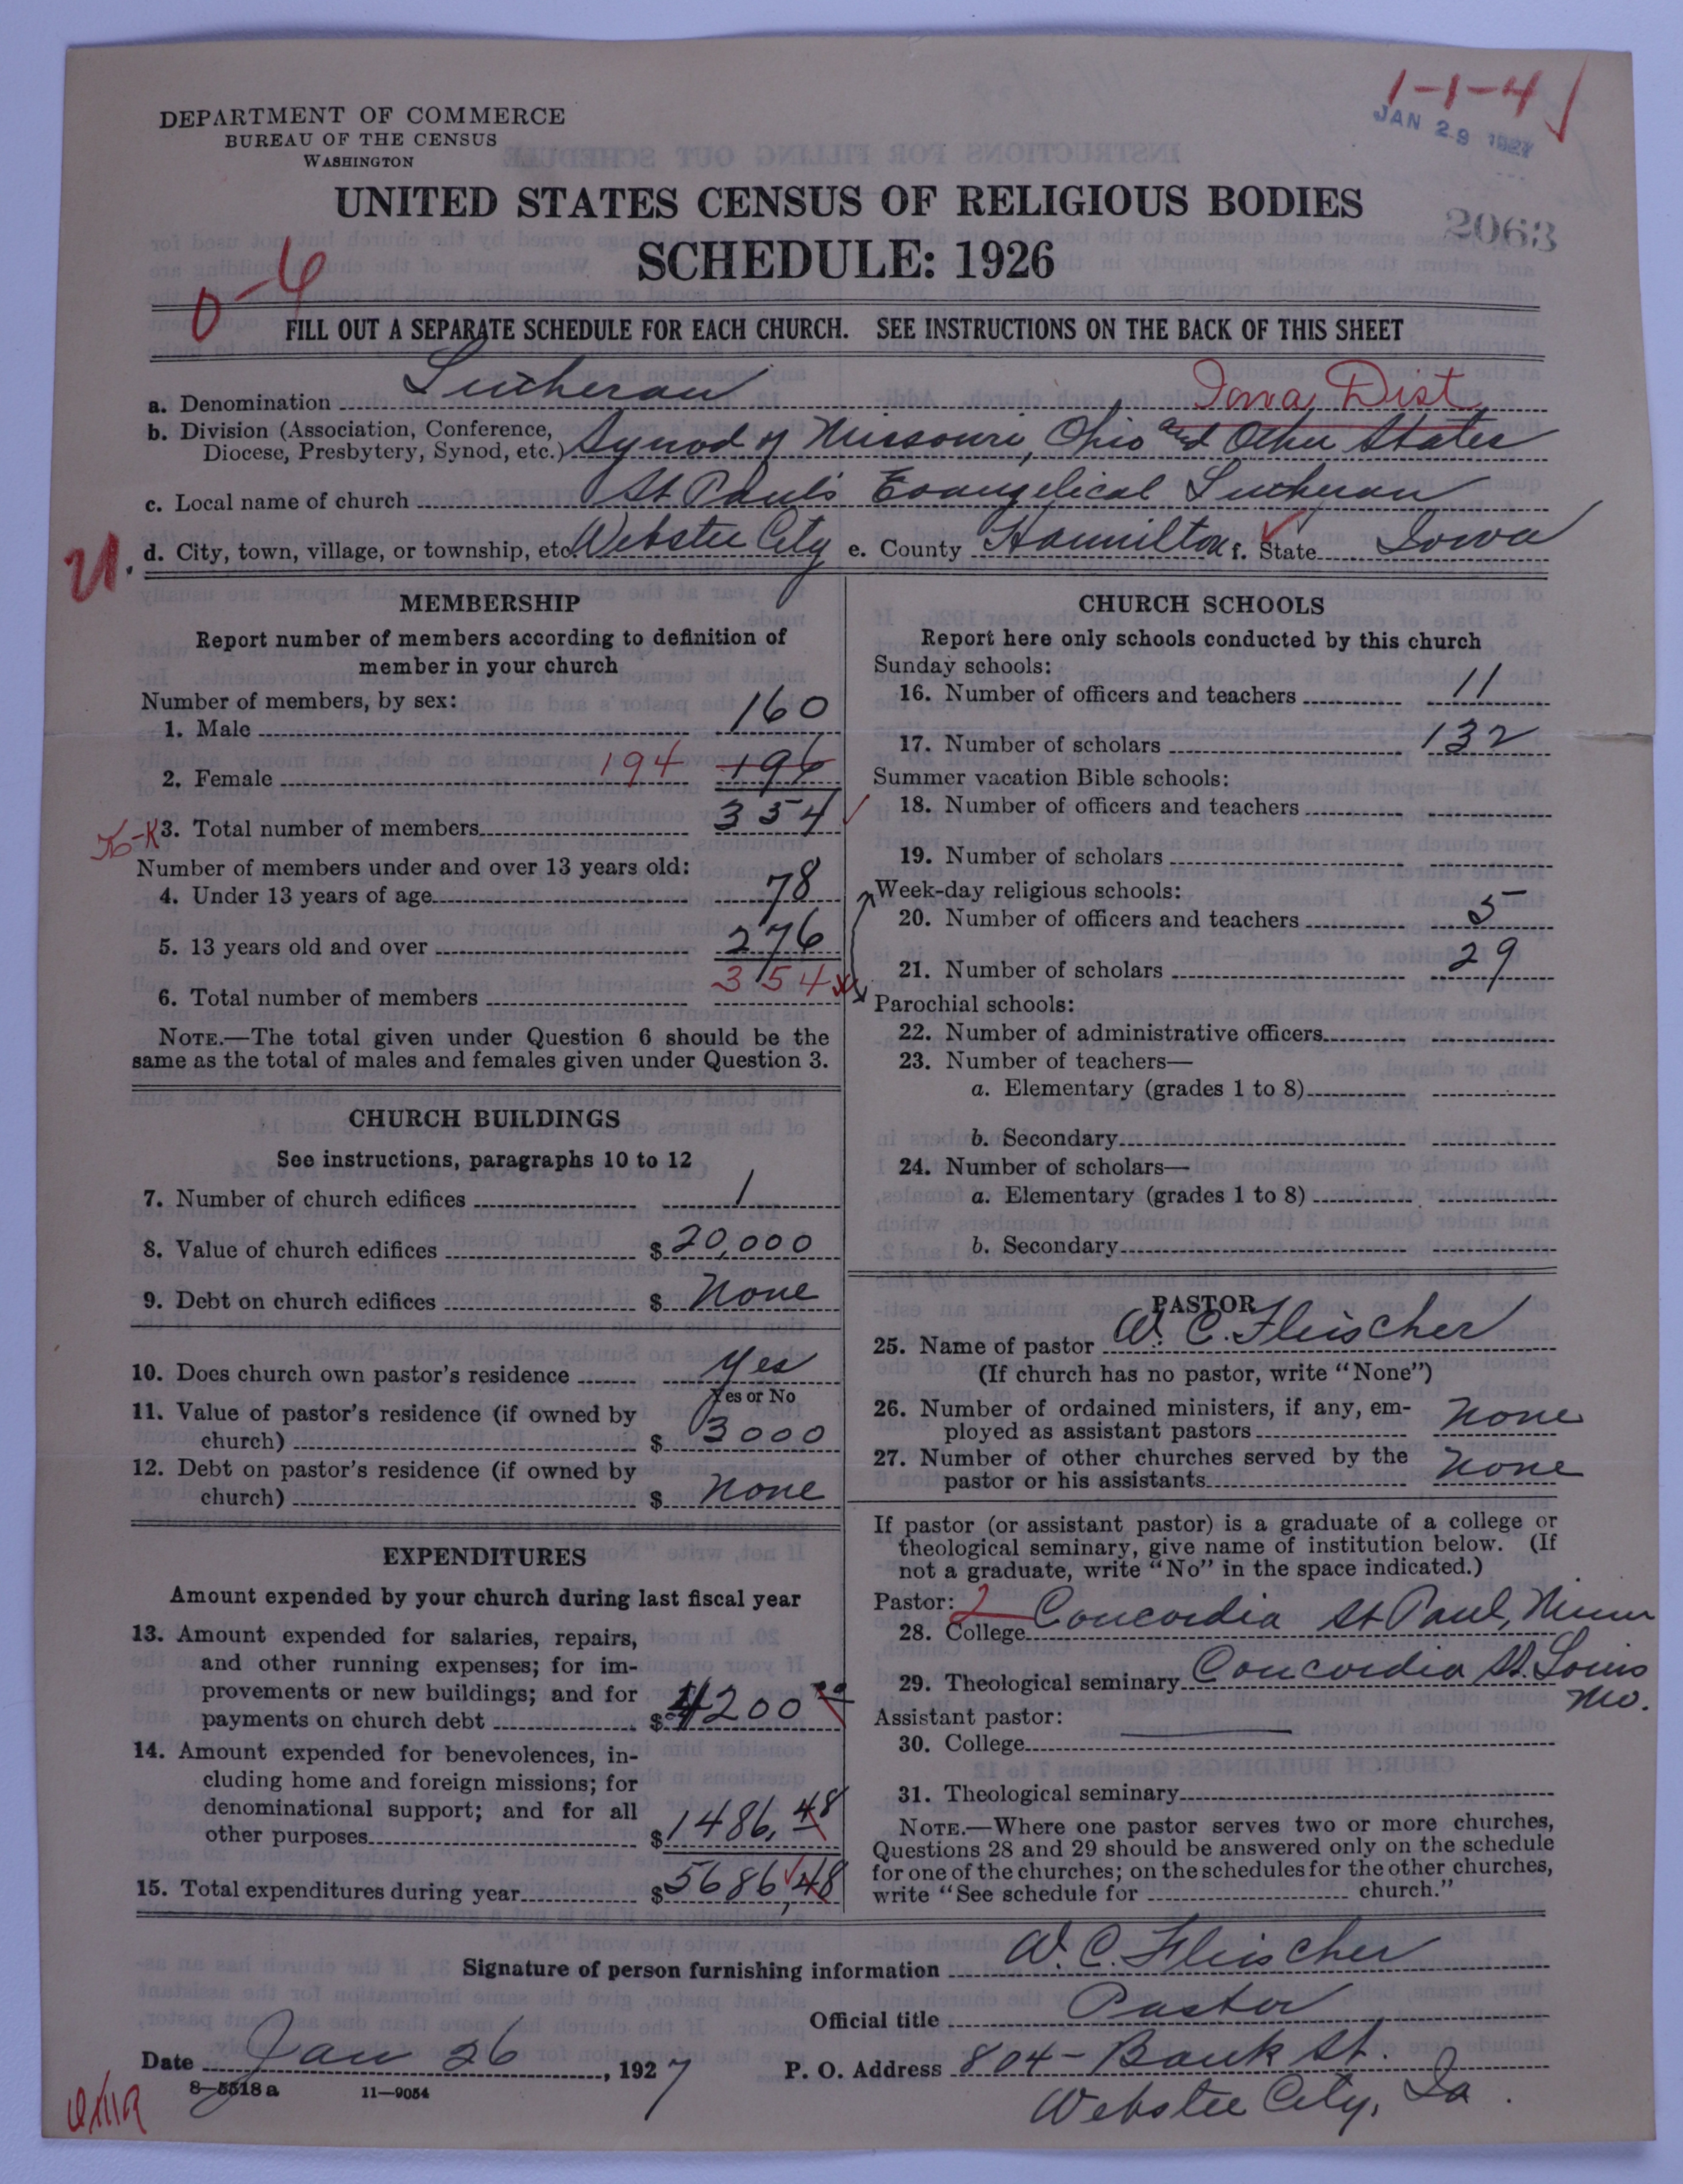 1-1-4
DEPARTMENT OF COMMERCE
BUREAU OF THE CENSUS
WASHINGTON
JAN 29 1927
UNITED STATES CENSUS OF RELIGIOUS BODIES
2063
SCHEDULE: 1926
FILL OUT A SEPARATE SCHEDULE FOR EACH CHURCH. SEE INSTRUCTIONS ON THE BACK OF THIS SHEET
a. Denomination Lutheran Iowa Dist
b. Division (Association, Conference, Diocese, Presbytery, Synod, etc.) Synod of Missouri, Ohio and Other States
c. Local name of church St Paul's Evangelical Lutheran
d. City, town, village, or township, etc. Webster City e. County Hamilton f. State Iowa
MEMBERSHIP
Report number of members according to definition of
member in your church
Number of members, by sex:
1. Male 160
2. Female 194 196
3. Total number of members 354
Number of members under and over 13 years old:
4. Under 13 years of age 78
5. 13 years old and over 276
6. Total number of members 354
NOTE.—The total given under Question 6 should be the
same as the total of males and females given under Question 3.
CHURCH BUILDINGS
See instructions, paragraphs 10 to 12
7. Number of church edifices 1
8. Value of church edifices $ 20,000
9. Debt on church edifices $ None
10. Does church own pastor's residence Yes
Yes or No
11. Value of pastor's residence (if owned by
church) $ 3000
12. Debt on pastor's residence (if owned by
church) $ None
EXPENDITURES
Amount expended by your church during last fiscal year
13. Amount expended for salaries, repairs,
and other running expenses; for im-
provements or new buildings; and for
payments on church debt $ 4200 00
14. Amount expended for benevolences, in-
cluding home and foreign missions; for
denominational support; and for all
other purposes $ 1486.48
15. Total expenditures during year $ 5686.48
CHURCH SCHOOLS
Report here only schools conducted by this church
Sunday schools:
16. Number of officers and teachers 11
17. Number of scholars 132
Summer vacation Bible schools:
18. Number of officers and teachers
19. Number of scholars
Week-day religious schools:
20. Number of officers and teachers 5
21. Number of scholars 29
Parochial schools:
22. Number of administrative officers
23. Number of teachers—
a. Elementary (grades 1 to 8)
b. Secondary
24. Number of scholars—
a. Elementary (grades 1 to 8)
b. Secondary
PASTOR
25. Name of pastor W. C. Fleischer
(If church has no pastor, write "None")
26. Number of ordained ministers, if any, em-
ployed as assistant pastors None
27. Number of other churches served by the
pastor or his assistants None
If pastor (or assistant pastor) is a graduate of a college or
theological seminary, give name of institution below. (If
not a graduate, write "No" in the space indicated.)
Pastor: 2
28. College Concordia St Paul, Minn
29. Theological seminary Concordia St. Louis
Mo.
Assistant pastor:
30. College
31. Theological seminary
NOTE.—Where one pastor serves two or more churches,
Questions 28 and 29 should be answered only on the schedule
for one of the churches; on the schedules for the other churches,
write "See schedule for church."
Signature of person furnishing information W. C. Fleischer
Official title Pastor
Date Jan 26, 1927 P. O. Address 804 - Bank St.
Webster City, Ia.
8-5518 a 11-9054